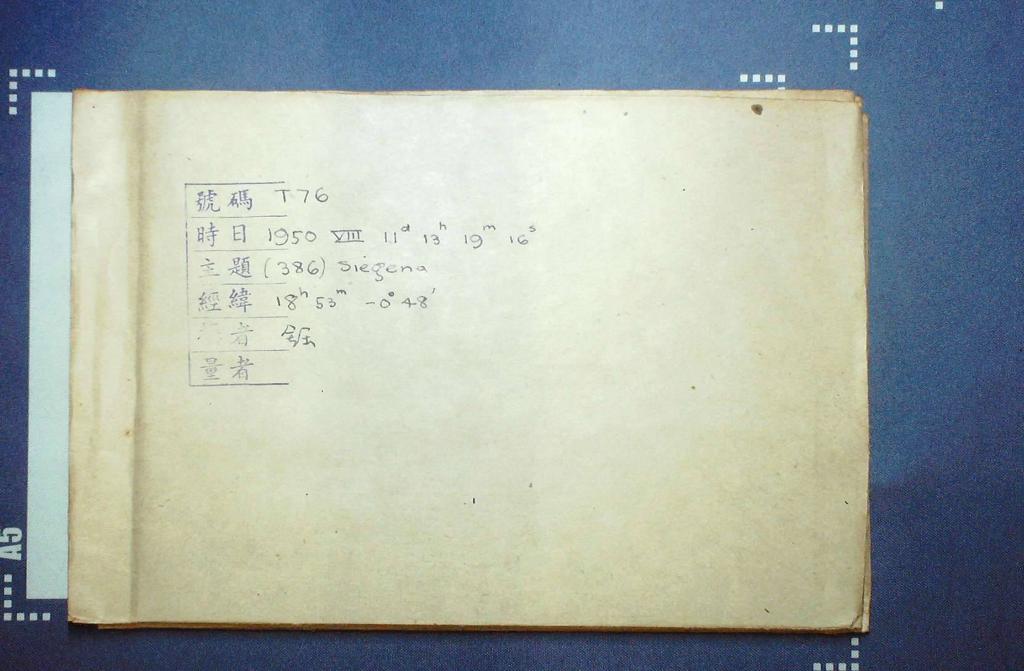 號碼 T76
時日 1950 VIII 11ᵈ 13ʰ 19ᵐ 16ˢ
主題 (386) Siegena
經緯 18ʰ 53ᵐ -0° 48'
者
量者
A5